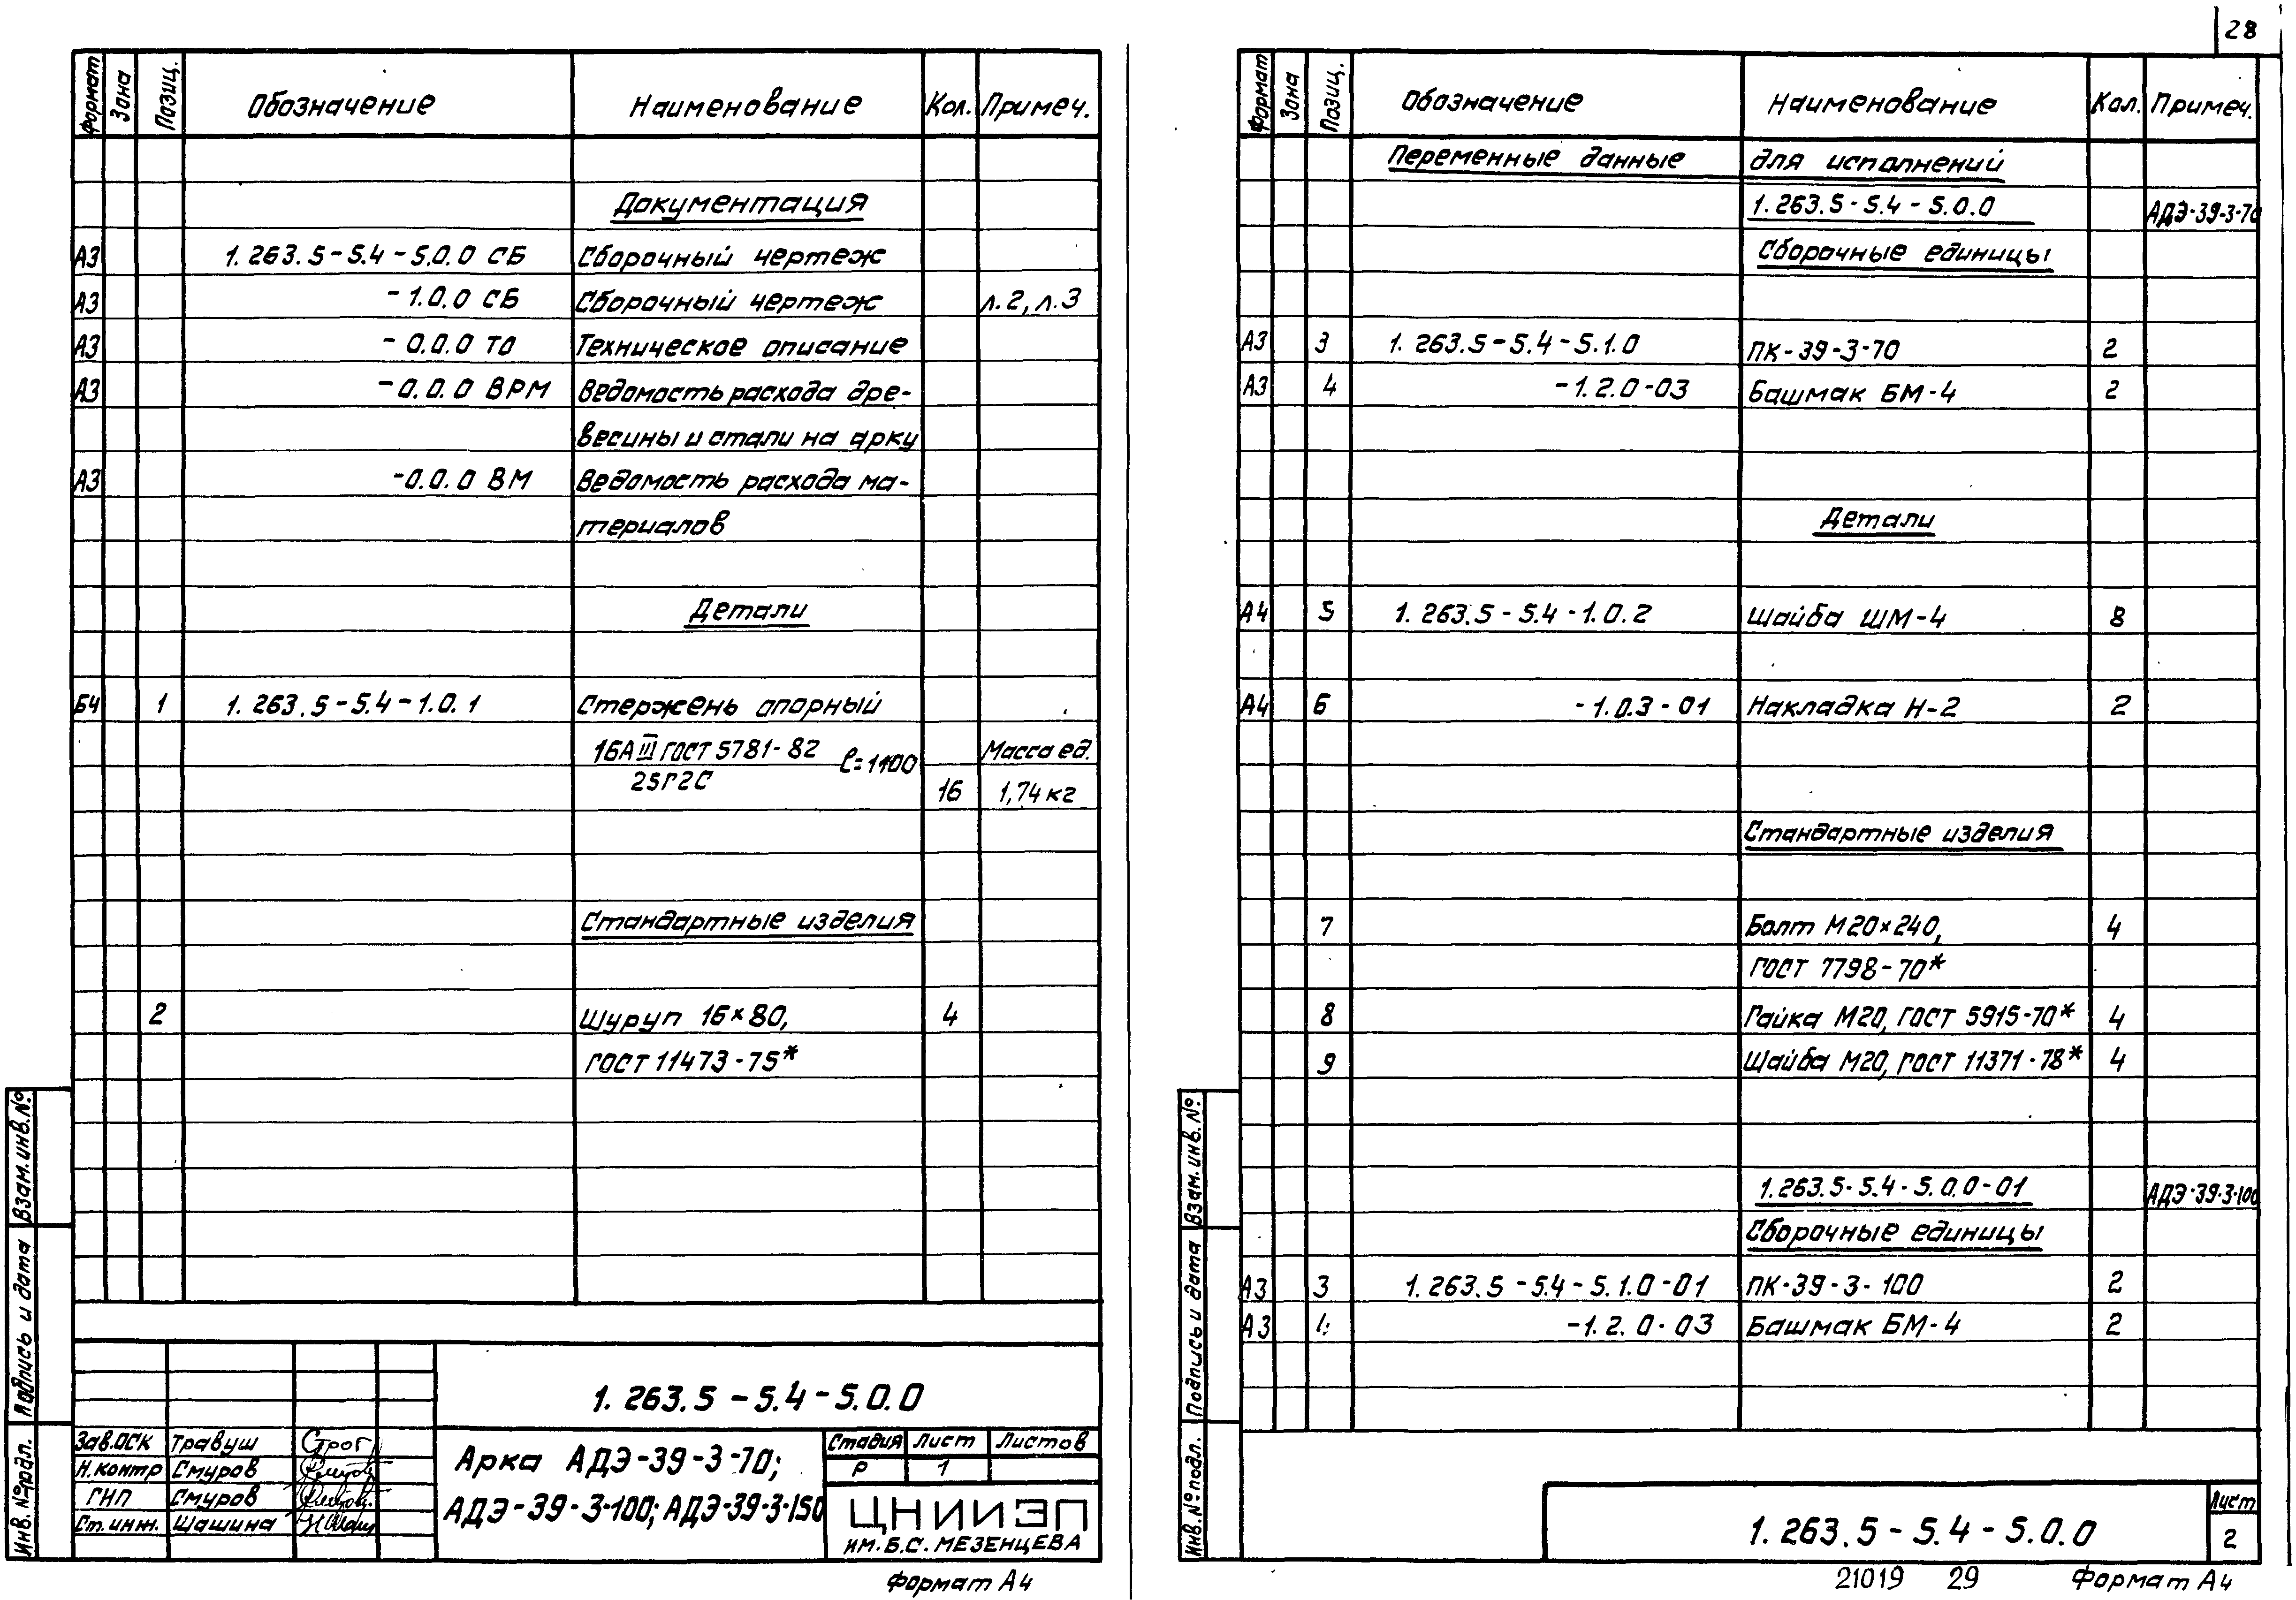 28
Формат Зона Позиц. Обозначение Наименование Кол. Примеч.
Документация
А3 1.263.5-5.4-5.0.0 СБ Сборочный чертеж
А3 -1.0.0 СБ Сборочный чертеж л.2, л.3
А3 -0.0.0 ТО Техническое описание
А3 -0.0.0 ВРМ Ведомость расхода дре-
весины и стали на арку
А3 -0.0.0 ВМ Ведомость расхода ма-
териалов
Детали
Б4 1 1.263.5-5.4-1.0.1 Стержень опорный
16АIII ГОСТ 5781-82 ℓ=1100 Масса ед.
25Г2С 16 1,74 кг
Стандартные изделия
2 Шуруп 16×80, 4
ГОСТ 11473-75*
Взам. инв. №
Подпись и дата
Инв. № подл.
1.263.5-5.4-5.0.0
Зав. ОСК Травуш
Н. контр Смуров
ГИП Смуров
Ст. инж. Шашина
Арка АДЭ-39-3-70;
АДЭ-39-3-100; АДЭ-39-3-150
Стадия Лист Листов
Р 1
ЦНИИЭП
ИМ. Б.С. МЕЗЕНЦЕВА
Формат А4
Формат Зона Позиц. Обозначение Наименование Кол. Примеч.
Переменные данные для исполнений
1.263.5-5.4-5.0.0 АДЭ-39-3-70
Сборочные единицы
А3 3 1.263.5-5.4-5.1.0 ПК-39-3-70 2
А3 4 -1.2.0-03 Башмак БМ-4 2
Детали
А4 5 1.263.5-5.4-1.0.2 Шайба ШМ-4 8
А4 6 -1.0.3-01 Накладка Н-2 2
Стандартные изделия
7 Болт М20×240, 4
ГОСТ 7798-70*
8 Гайка М20, ГОСТ 5915-70* 4
9 Шайба М20, ГОСТ 11371-78* 4
1.263.5-5.4-5.0.0-01 АДЭ-39-3-100
Сборочные единицы
А3 3 1.263.5-5.4-5.1.0-01 ПК-39-3-100 2
А3 4 -1.2.0-03 Башмак БМ-4 2
Взам. инв. №
Подпись и дата
Инв. № подл.
1.263.5-5.4-5.0.0
Лист
2
21019 29 Формат А4